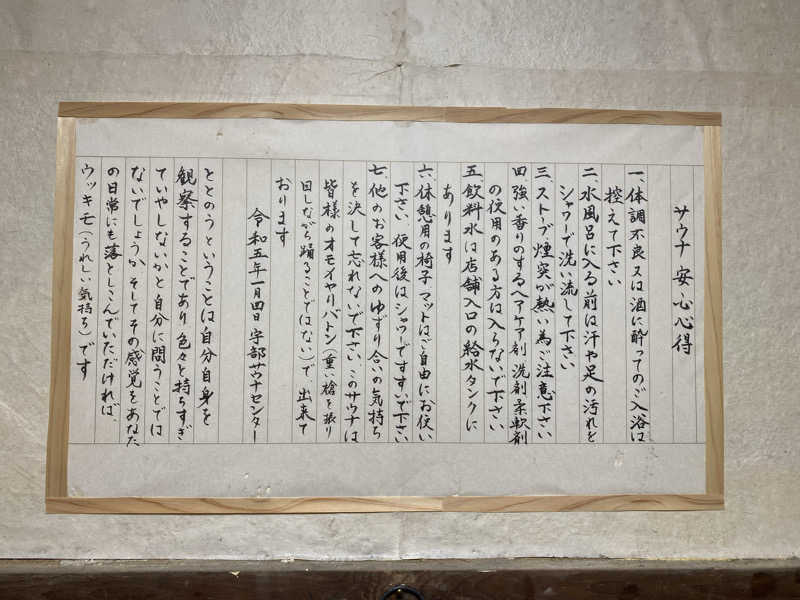 サウナ安心心得
一、体調不良又は酒に酔ってのご入浴は
控えて下さい
二、水風呂に入る前は汗や足の汚れを
シャワーで洗い流して下さい
三、ストーブ煙突が熱い為ご注意下さい
四、強い香りのするヘアケア剤洗剤柔軟剤
の使用のある方は入らないで下さい
五、飲料水は店舗入口の給水タンクに
あります
六、休憩用の椅子マットはご自由にお使い
下さい、使用後はシャワーですすいで下さい
七、他のお客様へのゆずり合いの気持ち
を決して忘れないで下さい、このサウナは
皆様のオモイヤリバトン(重い槍を振り
回しながら踊ることではない)で、出来て
おります
令和五年一月四日 宇部サウナセンター
ととのうということは自分自身を
観察することであり色々と持ちすぎ
ていやしないかと自分に問うことでは
ないでしょうか、そしてその感覚をあなた
の日常にも落としこんでいただければ、
ウッキモ(うれしい気持ち)です